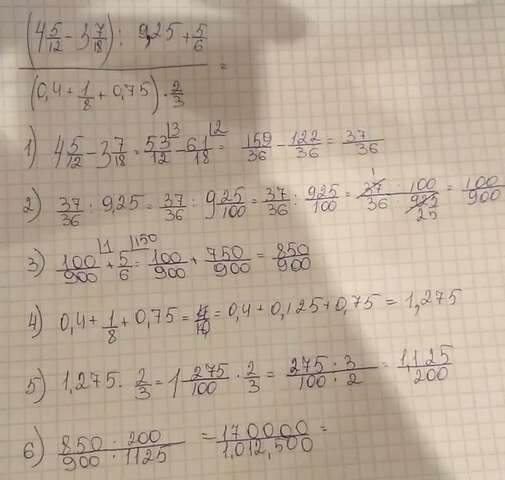 (4 5/12 - 3 7/18) : 9,25 + 5/6
(0,4 + 1/8 + 0,75) · 2/3 =
1) 4 5/12 - 3 7/18 = 53/12 |3 - 61/18 |2 = 159/36 - 122/36 = 37/36
2) 37/36 : 9,25 = 37/36 : 9 25/100 = 37/36 : 925/100 = 37 · 100 / 36 · 925 1 25 = 100/900
3) 100/900 |1 + 5/6 |150 = 100/900 + 750/900 = 850/900
4) 0,4 + 1/8 + 0,75 = 4/10 = 0,4 + 0,125 + 0,75 = 1,275
5) 1,275 · 2/3 = 1 275/100 · 2/3 = 275 · 3 / 100 · 2 = 1,125/200
6) 850 · 200 / 900 · 1125 = 170000/1,012,500 =